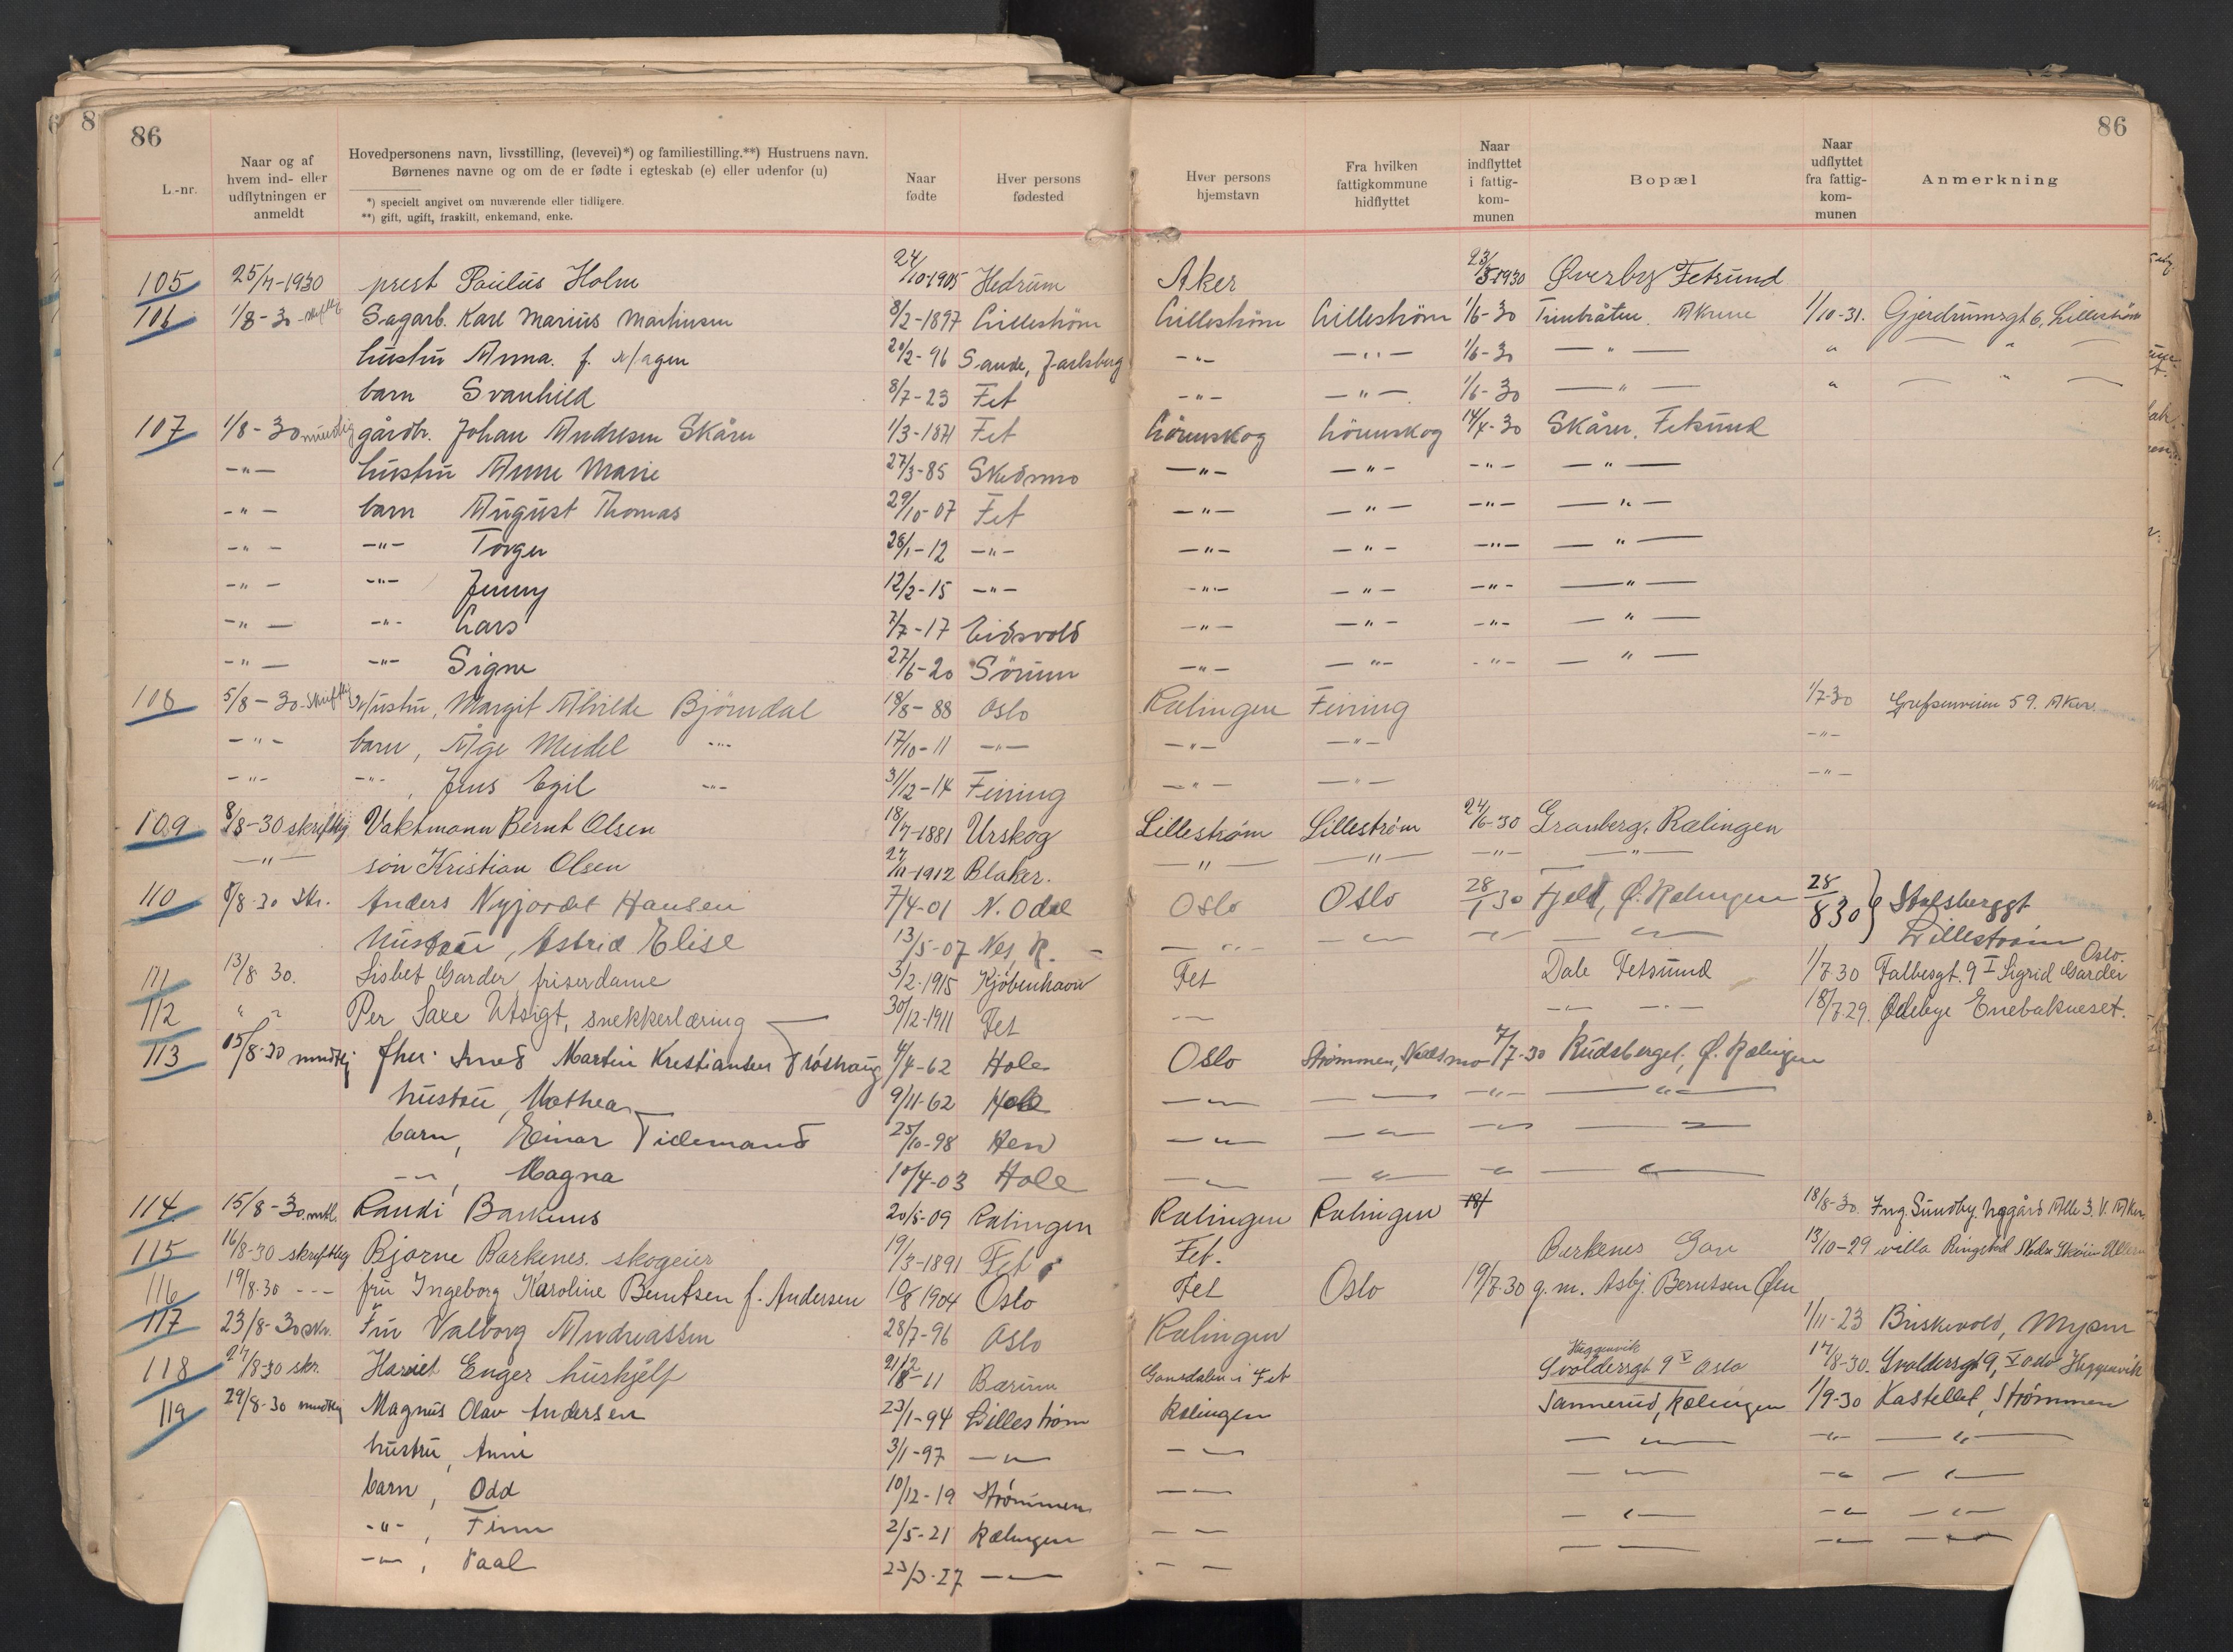 86
86
L.-nr.
Naar og af hvem ind- eller udflytningen er anmeldt
Hovedpersonens navn, livsstilling, (levevei)*) og familiestilling.**) Hustruens navn.
Børnenes navne og om de er fødte i egteskab (e) eller udenfor (u)
*) specielt angivet om nuværende eller tidligere.
**) gift, ugift, fraskilt, enkemand, enke.
Naar fødte
Hver persons fødested
Hver persons hjemstavn
Fra hvilken fattigkommune hidflyttet
Naar indflyttet i fattig-kom-munen
Bopæl
Naar udflyttet fra fattig-kom-munen
Anmerkning
105 25/7-1930 prest Paulus Holm 24/10-1905 Hedrum Aker 1930 Øverby Fetsund
106 1/8-30 Sagarb. Karl Marius Martinsen 8/2-1897 Lilleström Lilleström Lilleström 1/6-30 1/10-31. Gjerdrumsgt 6, Lilleström
hustru Anna. f. Hagen 20/2-96 Sande, Jarlsberg -"- -"- 1/6-30 -"- " "
barn Svanhild 8/7-23 Fet -"- -"- 1/6-30 -"- " "
107 1/8-30 mundtlig gårdbr. Johan Andresen Skåren 1/3-1871 Fet Lörenskog Lörenskog 14/4-30 Skåren, Fetsund
-"- hustru Anne Marie 27/3-85 Skedsmo -"- -"- -"- -"-
-"- barn August Thomas 29/10-07 Fet -"- -"- -"- -"-
-"- -"- Torger 28/1-12 -"- -"- -"- -"- -"-
-"- -"- Jenny 12/2-15 -"- -"- -"- -"- -"-
-"- -"- Lars 7/7-17 Eidsvold -"- -"- -"- -"-
-"- -"- Signe 27/6-20 Sörum -"- -"- -"- -"-
108 5/8-30 skriftlig Hustru, Margit Alvilde Björndal 18/8-88 Oslo Rælingen Feiring 1/7-30 Grefsenveien 59. Aker
-"- barn, Åge Meidel -"- 17/10-11 -"- -"- -"- -"-
-"- -"-, Jens Egil -"- 31/12-14 Feiring -"- -"- -"-
109 8/8-30 skriftlig Vaktmann Bernt Olsen 18/7-1881 Urskog Lillestrøm Lillestrøm 24/6-30 Granberg, Rælingen
-"- søn Kristian Olsen 1912 Blaker. -"- -"- -"- -"-
110 8/8-30 skr. Anders Nyjordet Hansen 7/4-01 N. Odal Oslo Oslo 28/1 30 Fjeld, Ø. Rælingen 28/8 30 } Stalsberggt
hustru, Astrid Elise 13/5-07 Nes, R. -"- -"- -"- -"- Lillestrøm
111 13/8 30. Lisbet Garder friserdame 3/2-1915 Kjøbenhavn Fet Dale Fetsund 1/7 30 Falbesgt. 9 I Sigrid Garder Oslo.
112 " " Per Saxe Utsigt, snekkerlæring 30/12-1911 Fet -"- -"- 18/7 29. Ødebye Enebakneset.
113 15/8-30 mundtlig Martin Kristiansen Frøshaug 4/4-62 Hole Oslo Strømmen, Skedsmo 7/7-30 Rudsberget, Ø. Rælingen
hustru, Mathea 9/11-62 Hole -"- -"- -"- -"-
barn, Einar Tidemand 25/10-98 Hen -"- -"- -"- -"-
-"-, Magna 10/4-03 Hole -"- -"- -"- -"-
114 15/8-30 mtl. Randi Barkenes 20/5-09 Rælingen Rælingen Rælingen 18/ 18/8-30. Ing. Sundby,
115 16/8-30 skriftlig Bjarne Barkenes. skogeier 19/3-1891 Fet Fet. Barkenes Gan 13/10-29 villa Ringstad
116 19/8-30 --- fru Ingeborg Karoline Berntsen f. Andersen 10/8 1904 Oslo Fet Oslo 19/7-30 g. m. Asbj. Berntsen Øen
117 23/8-30 skr. Fru Valborg Andreassen 28/7-96 Oslo Rælingen 1/11-23 Briskevold, Mysen
118 27/8-30 skr. Harriet Enger hushjelp 11 Bærum Gansdalen i Fet Heggenvik Svoldersgt 9 V Oslo 17/8-30. Svoldersgt 9, V Oslo Heggenvik
119 29/8-30 mundtlig Magnus Olav Andersen 23/1-94 Lillestrøm Rælingen Sannerud, Rælingen 1/9-30 Kastellet, Strømmen
hustru, Anni 3/1-97 -"- -"- -"- -"- -"-
barn, Odd 10/12-19 Strømmen -"- -"- -"- -"-
-"-, Finn 2/5-21 Rælingen -"- -"- -"- -"-
-"-, Paal 23/3-27 -"- -"- -"- -"- -"-